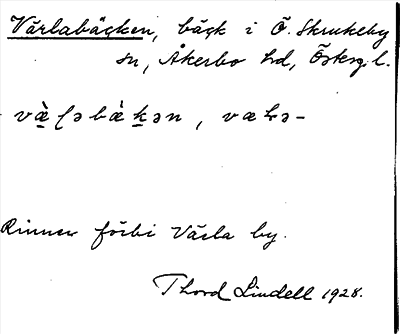 Värlabäcken, bäck i Ö. Skrukeby
sn, Åkerbo hd, Östergl.
Rinner förbi Värla by.
Thord Lindell 1928.